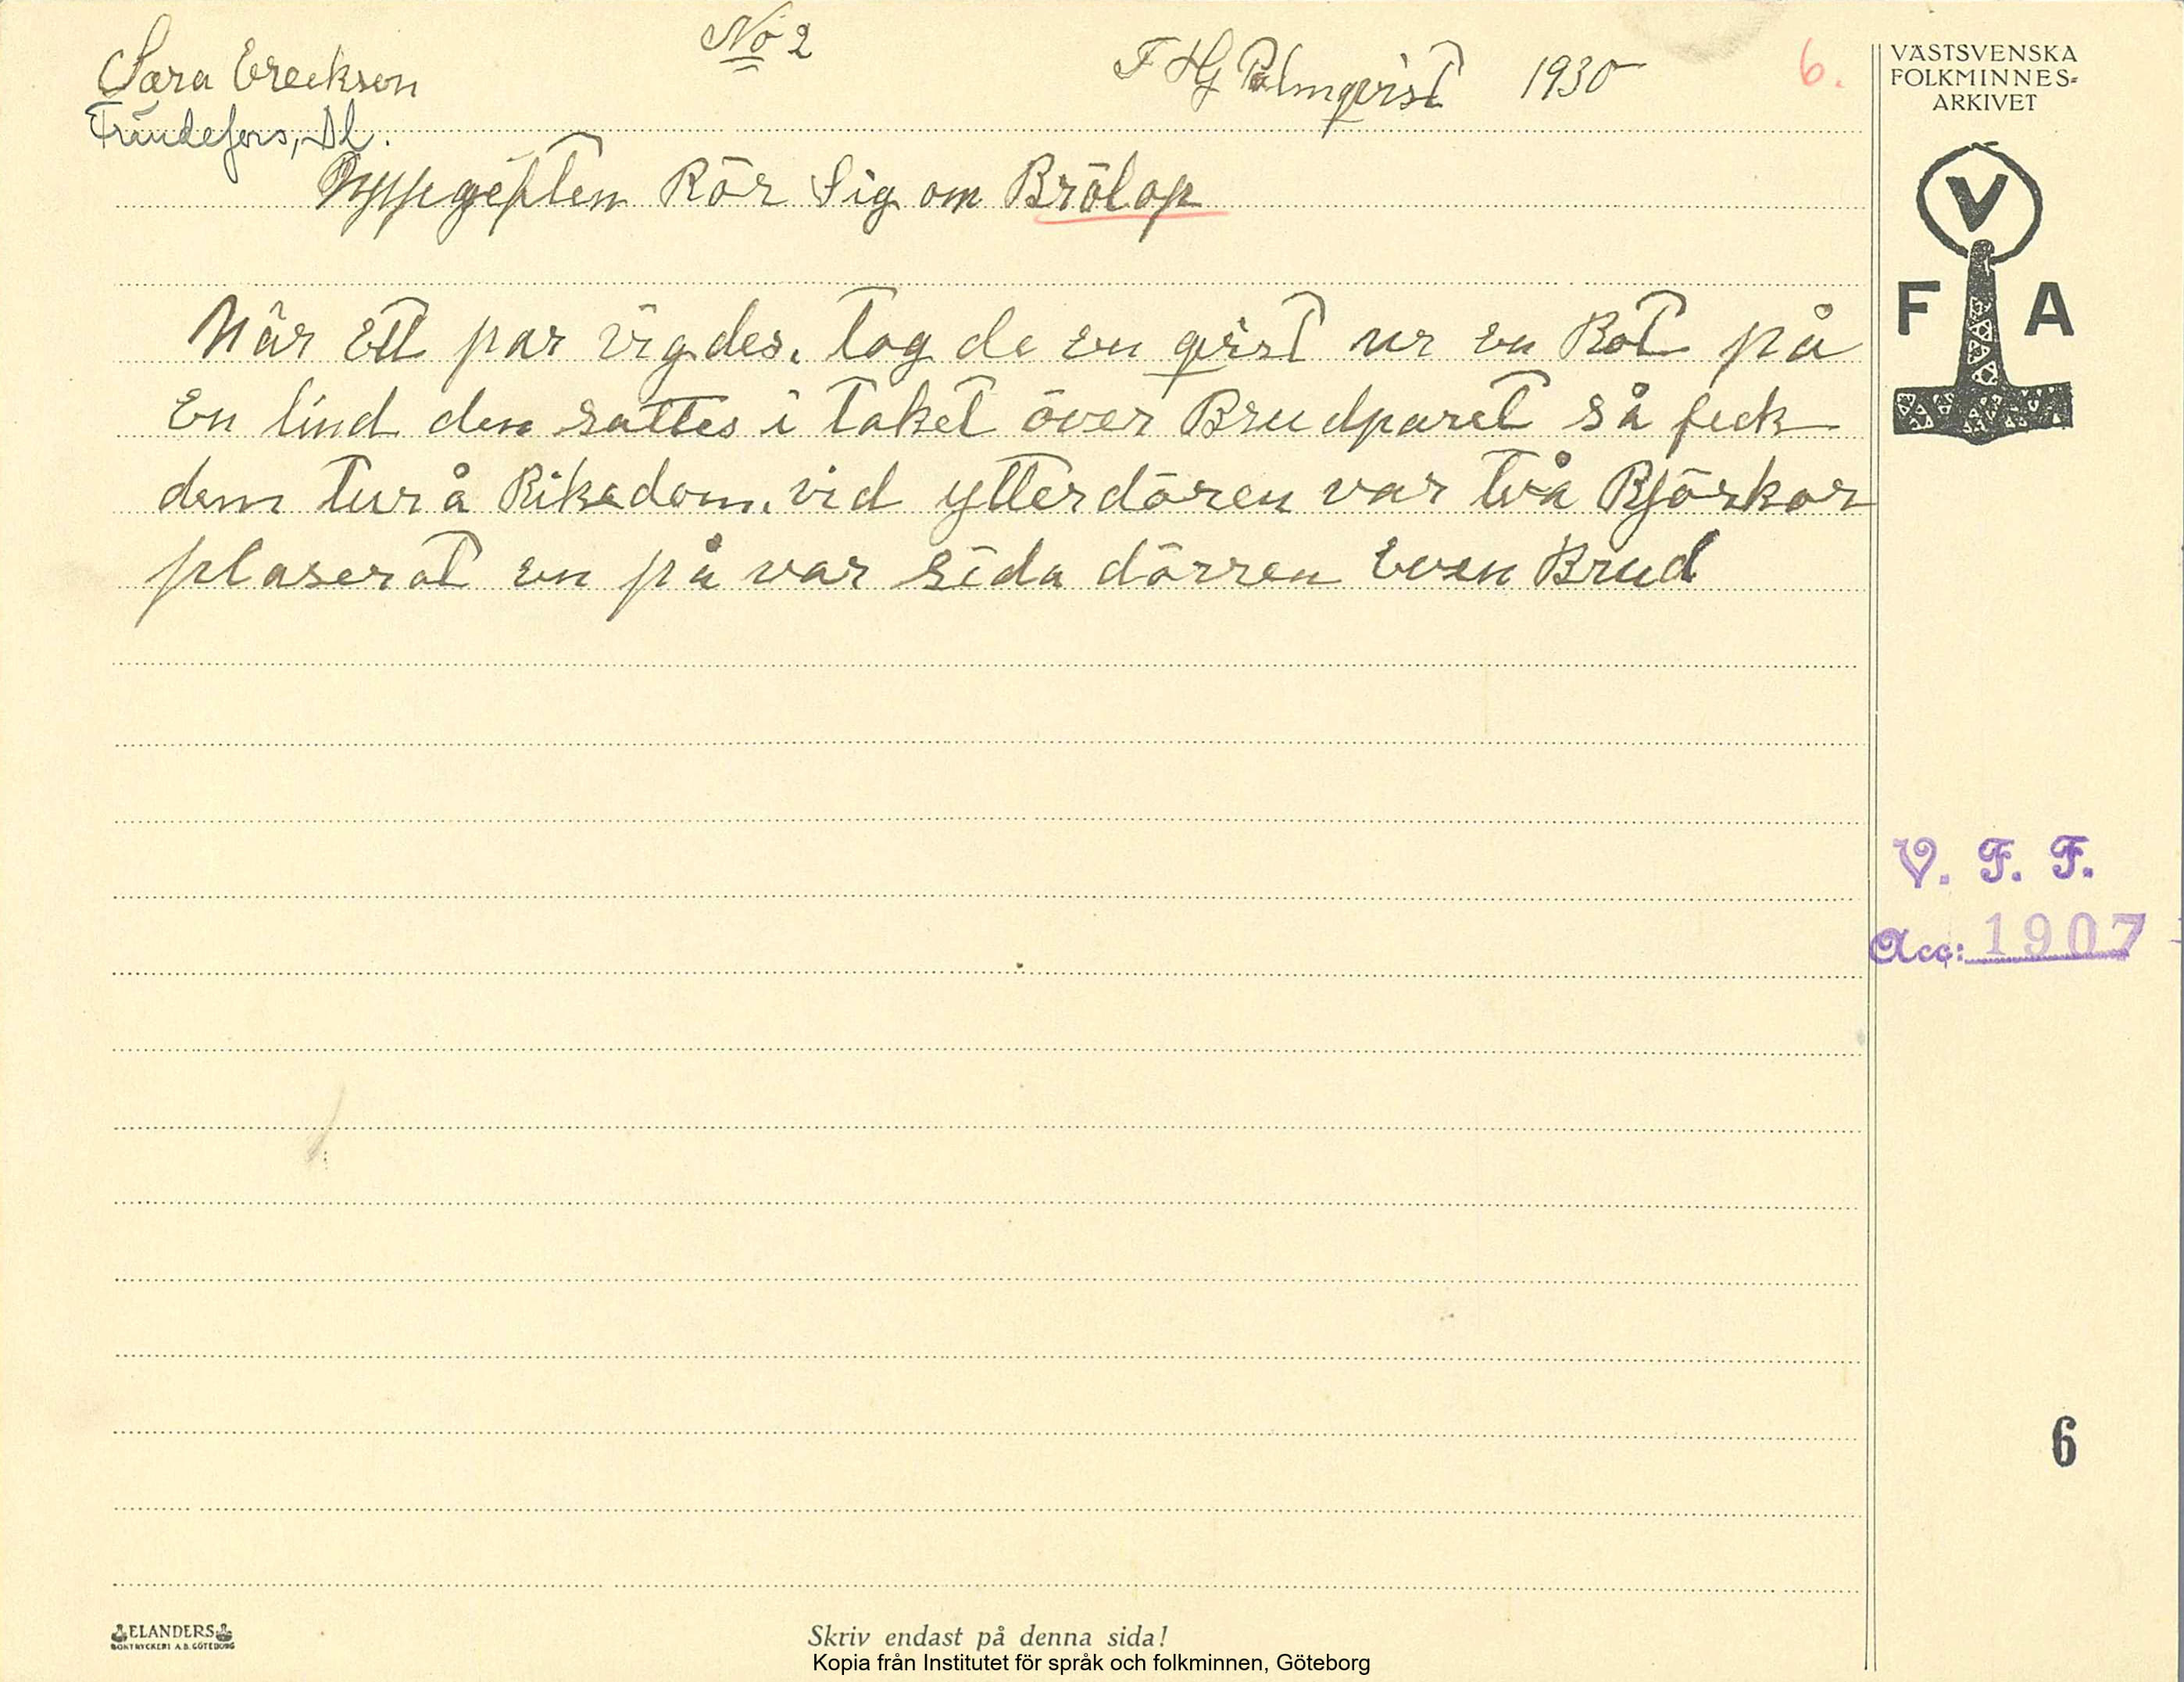 Sara Ereckson
No 2
F Hj Palmqvist 1930
6.
Frändefors, Dl.
Uppgeften Rör Sig om Brölop
När Ett par vigdes. tog de en qvist ur en Rot på
En lind den sattes i taket över Brudparet så feck
dem tur å Rikedom. vid ytterdören var två Björkar
plaserat en på var sida dörren även Brud
VÄSTSVENSKA
FOLKMINNES-
ARKIVET
V
F A
V. F. F.
Acc: 1907
6
ELANDERS
BOKTRYCKERI A.B. GÖTEBORG
Skriv endast på denna sida!
Kopia från Institutet för språk och folkminnen, Göteborg